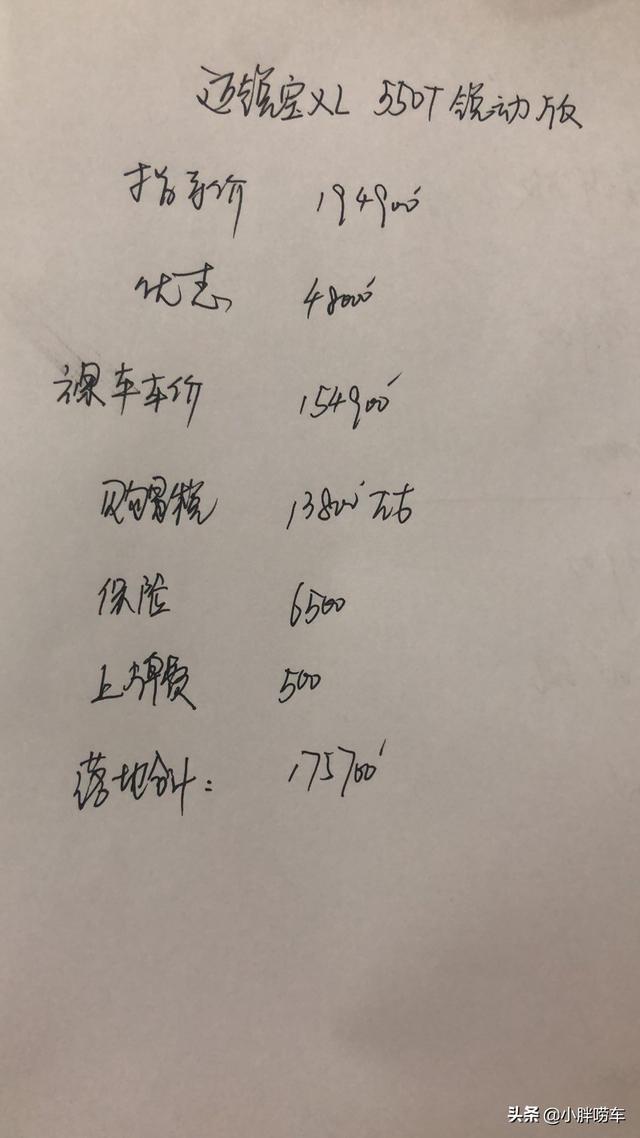 迈锐宝XL 550T 锐动版
指导价 194900
优惠 48000
裸车车价 154900
购置税 13800左右
保险 6500
上牌费 500
落地合计: 175700
头条 @小胖唠车